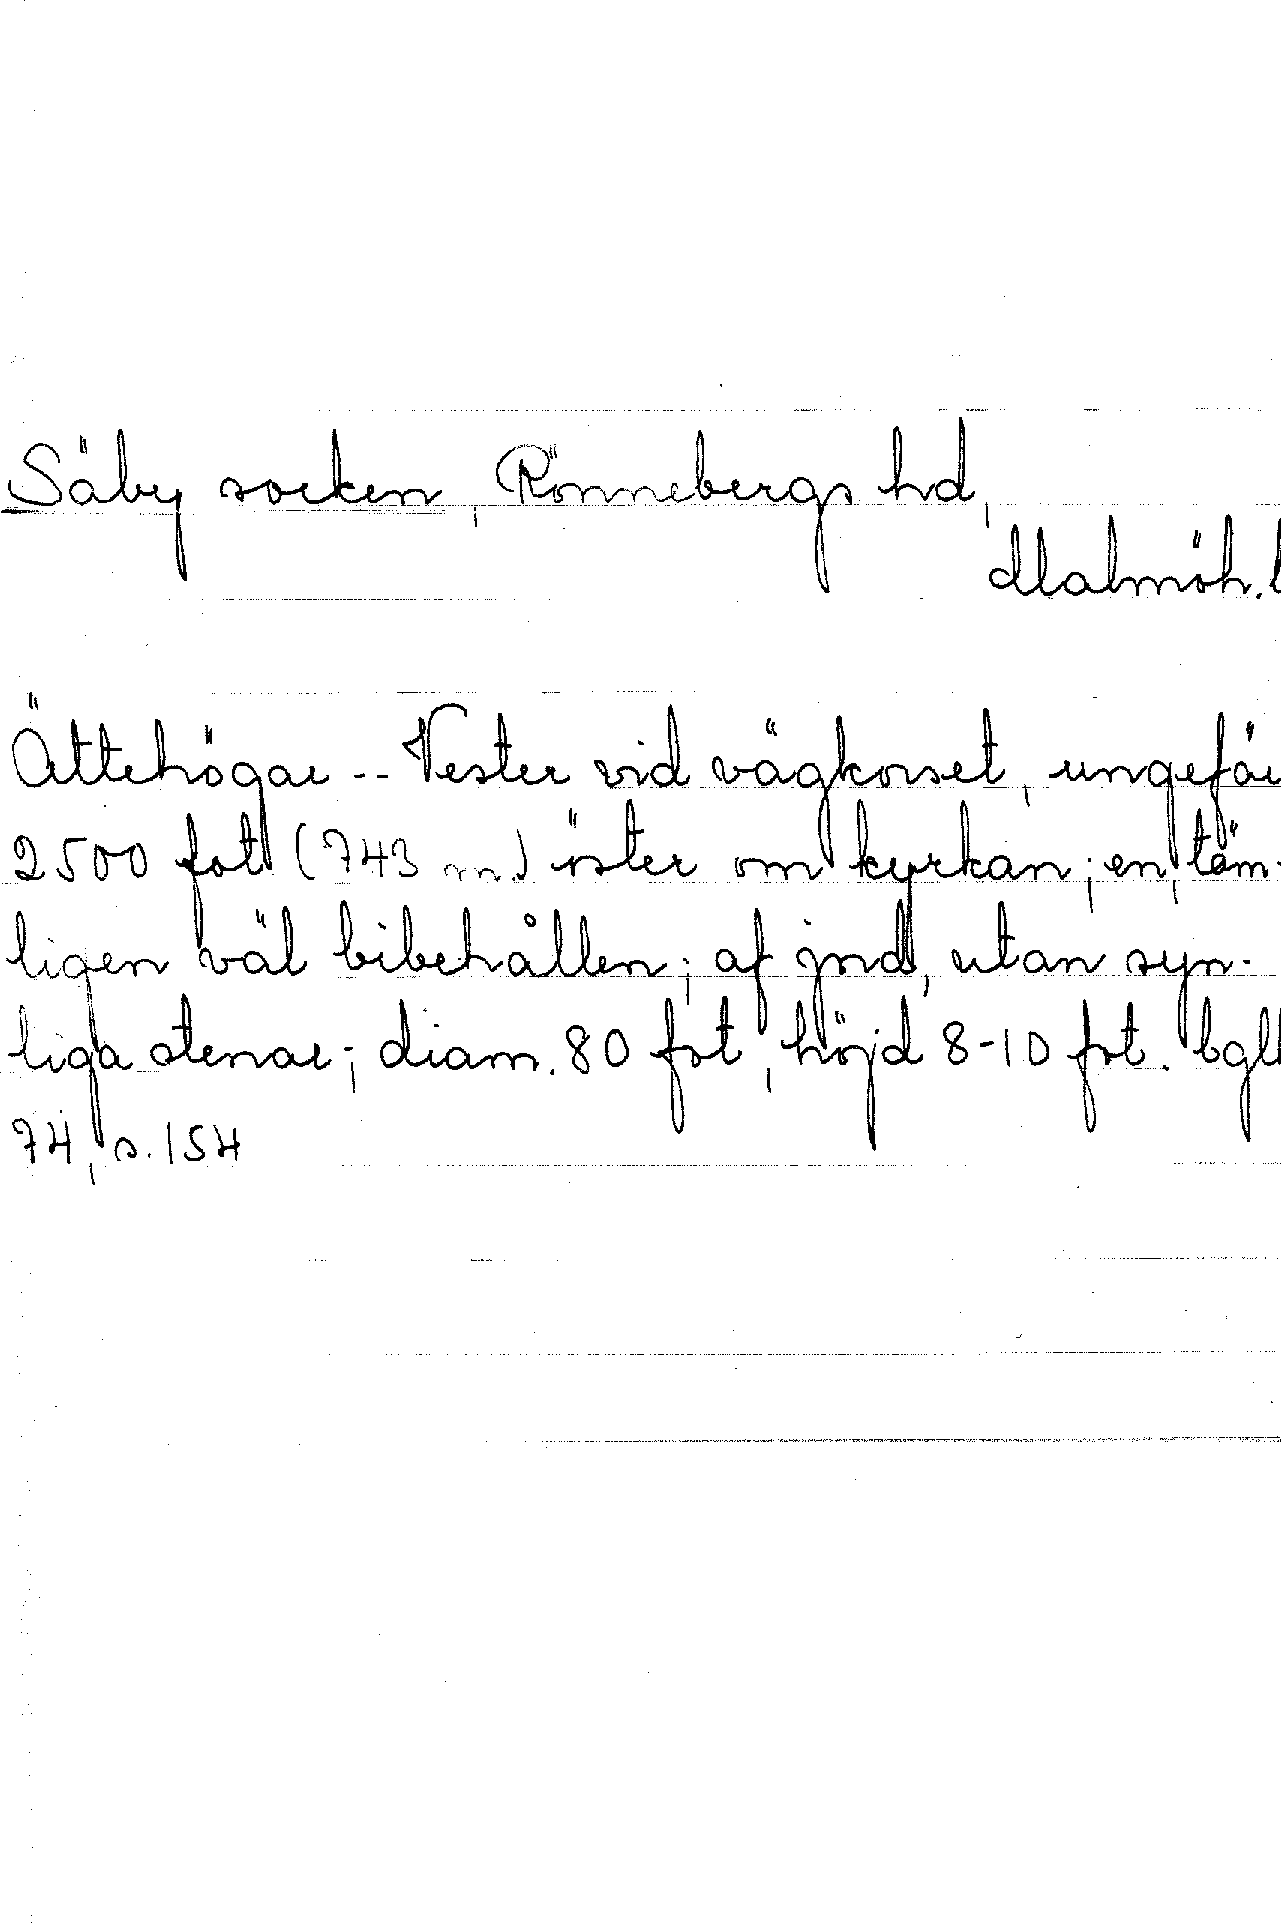 Säby socken, Rönnebergs hd,
Malmöh. l
Ättehögar -- Vester vid vägkorset, ungefär
2500 fot (743 m.) öster om kyrkan; en, täm-
ligen väl bibehållen; af jord, utan syn-
liga stenar; diam. 80 fot, höjd 8-10 fot.
74, s. 154